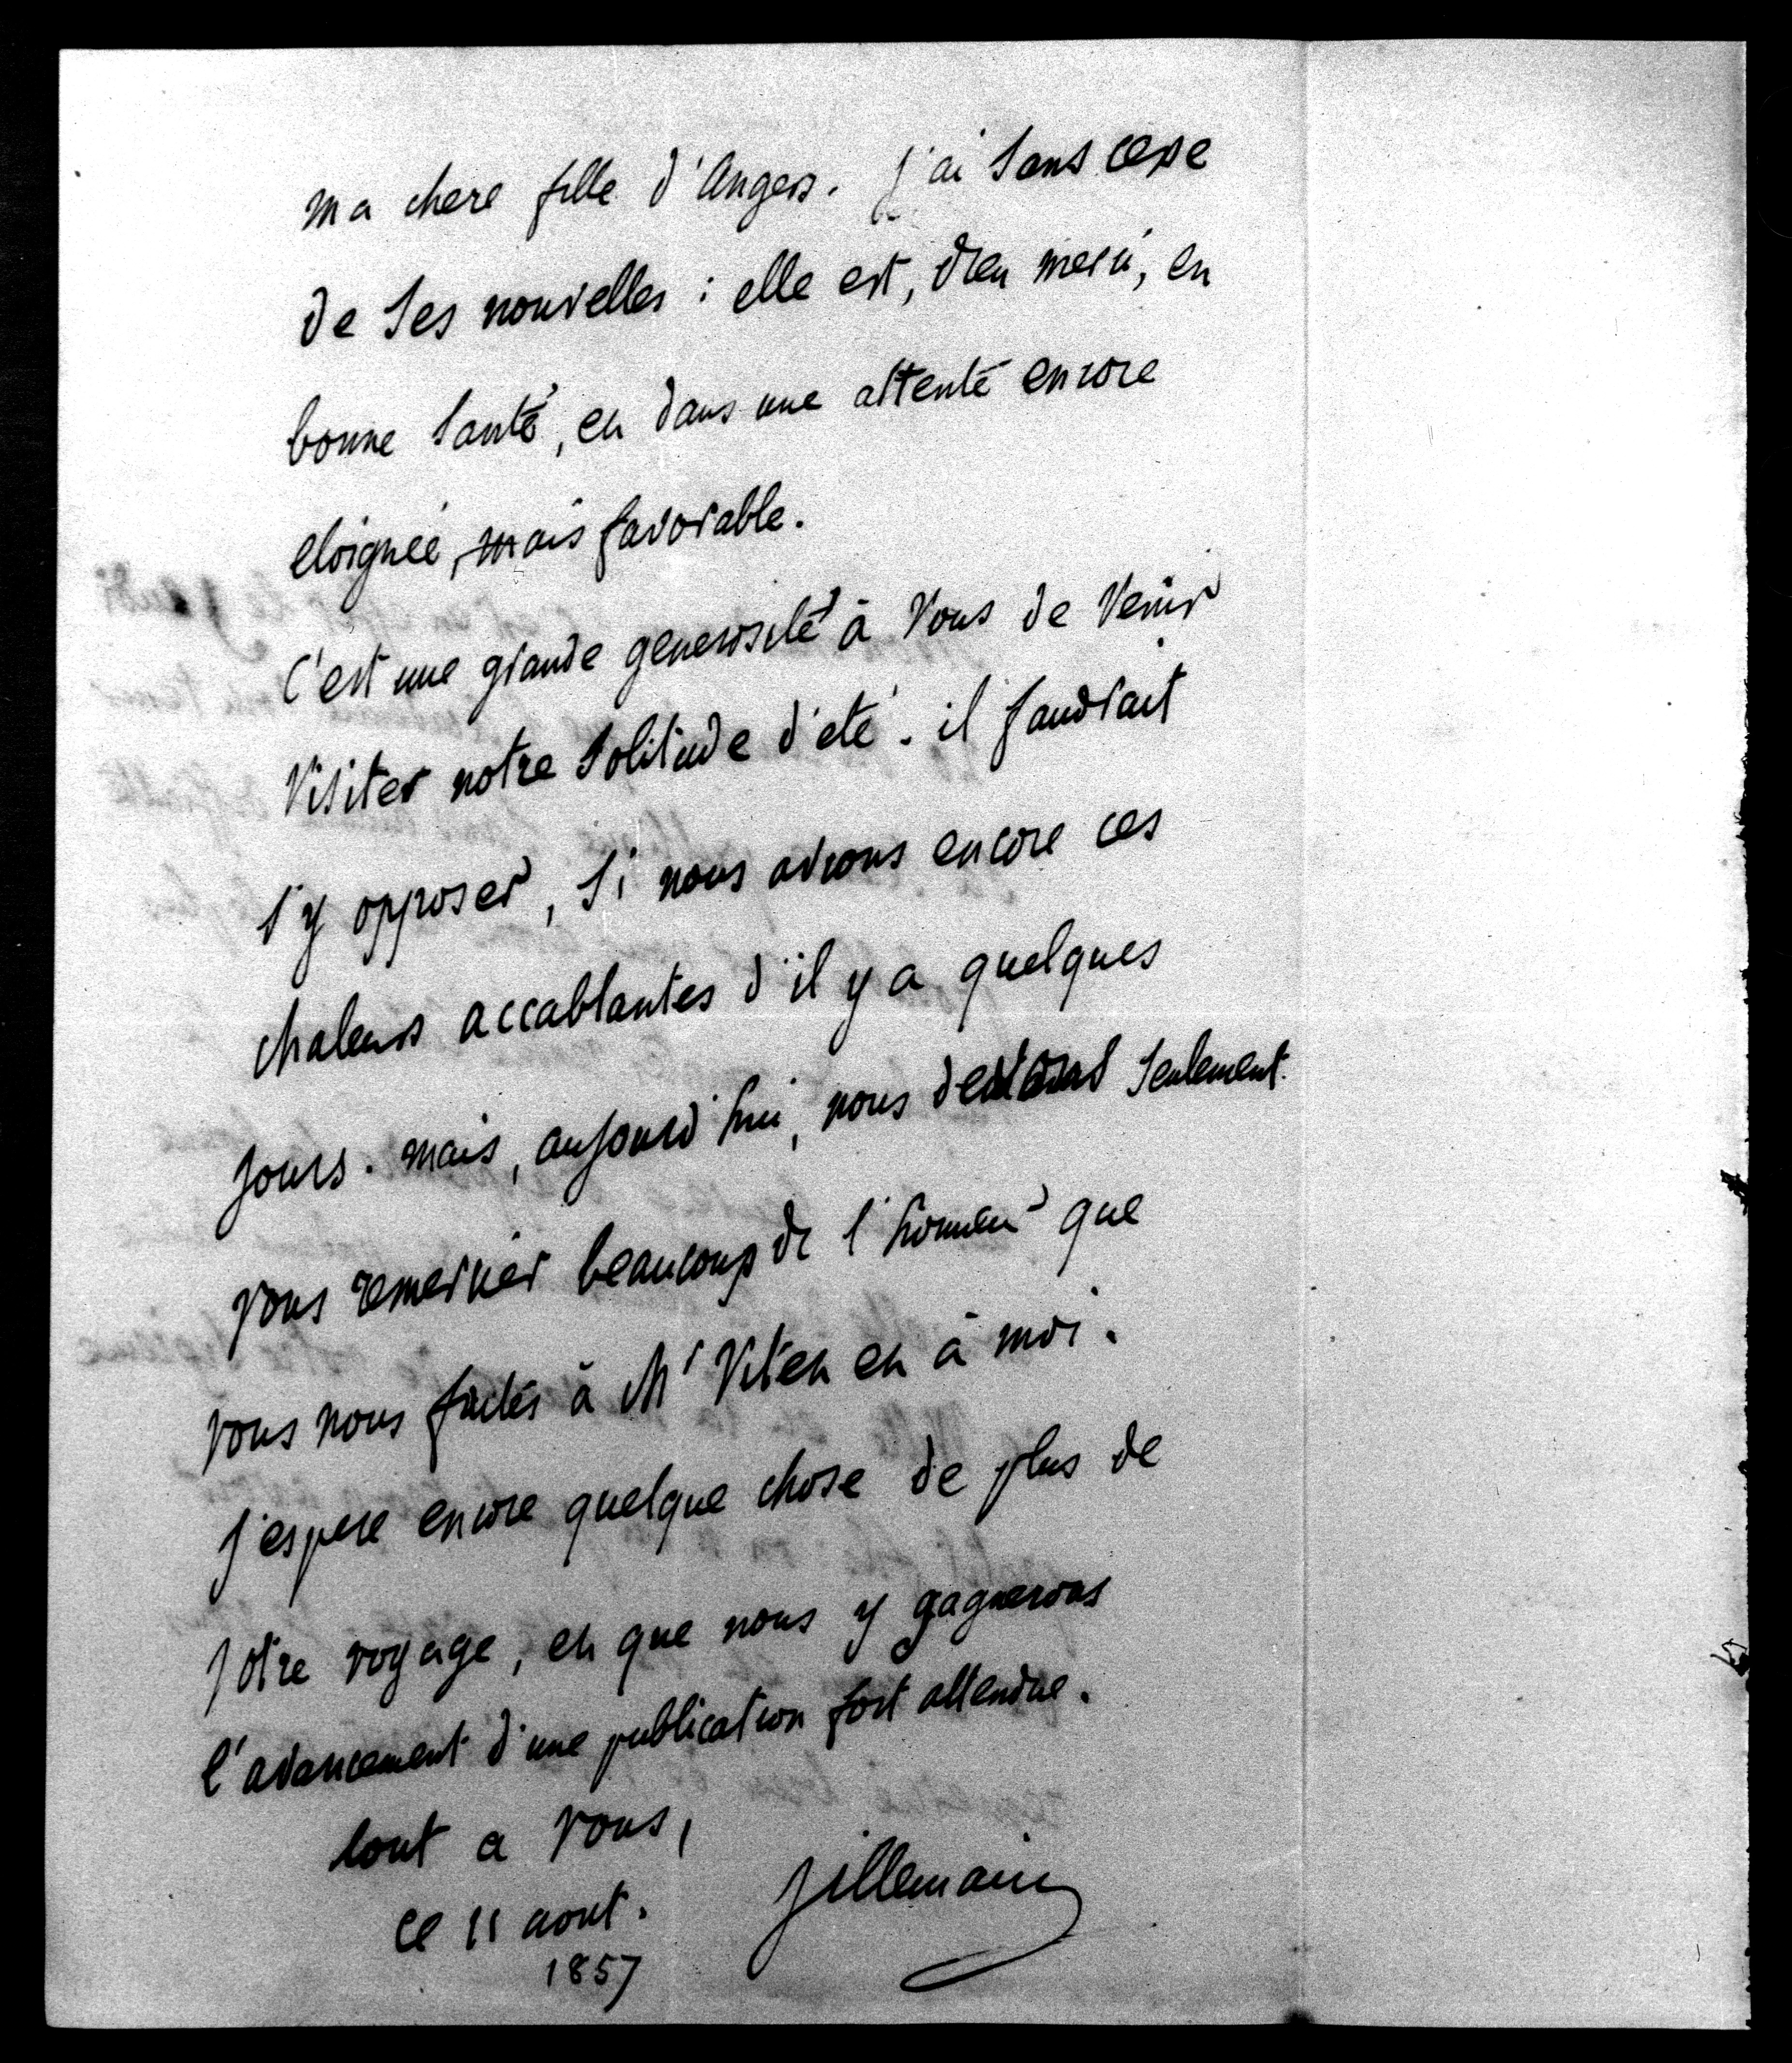 ma chere fille d'Angers. j'ai sans cesse
de ses nouvelles : elle est, dieu merci, en
bonne santé, et dans une attente encore
eloignée, mais favorable.
C'est une grande generosité à vous de venir
visiter notre solitude d'eté. il faudrait
s'y opposer, si nous avions encore ces
chaleurs accablantes d'il y a quelques
jours. mais, aujourd'hui, nous devons seulement
vous remercier beaucoup de l'honneur que
vous nous faites à Mr Vitet et à moi.
j'espere encore quelque chose de plus de
votre voyage, et que nous y gagnerons
l'avancement d'une publication fort attendue.
tout a vous,
Villemain
ce 11 aout.
1857